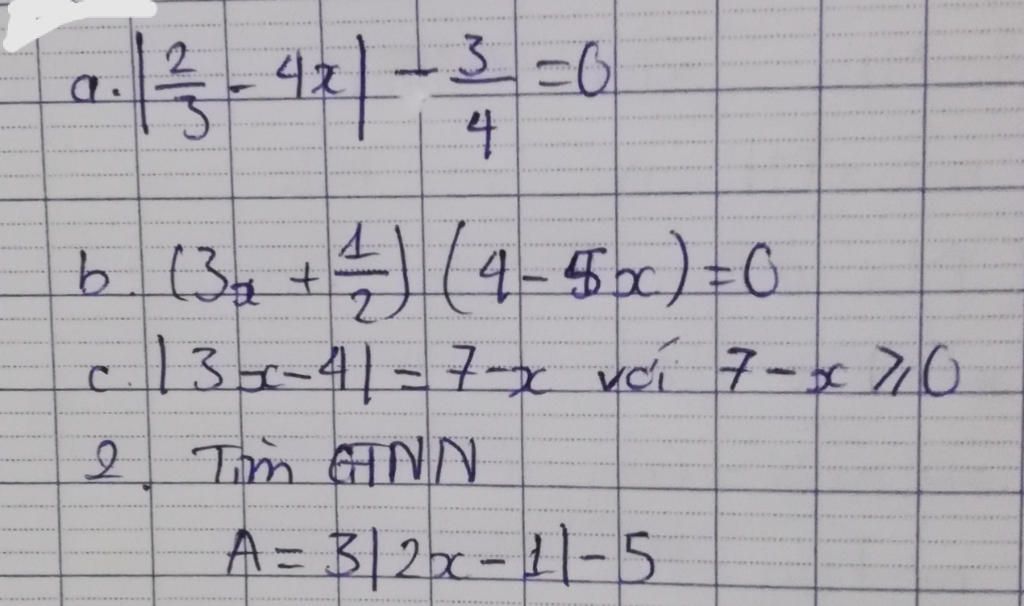 a. |2/3 - 4x| - 3/4 = 0
b. (3x + 1/2) (4 - 5x) = 0
c. |3x - 4| = 7 - x với 7 - x ⩾ 0
2. Tìm GTNN
A = 3|2x - 1| - 5